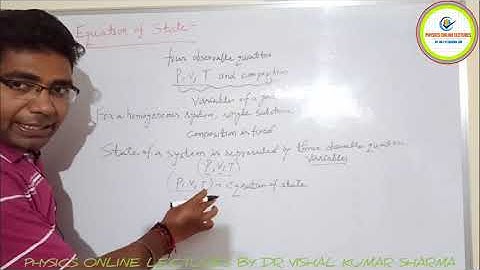 Equation of State:-
four observable quantities
P, V, T and composition
Variables of a gas
For a homogeneous system, single substance
composition is fixed
State of a system is represented by three observable quantities
Variables
(P, V, T)
(P, V, T) = equation of state
PHYSICS ONLINE LECTURES
PHYSICS ONLINE LECTURES BY DR VISHAL KUMAR SHARMA